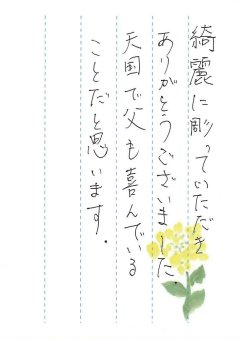 綺麗に彫っていただき
ありがとうございました.
天国で父も喜んでいる
ことだと思います.